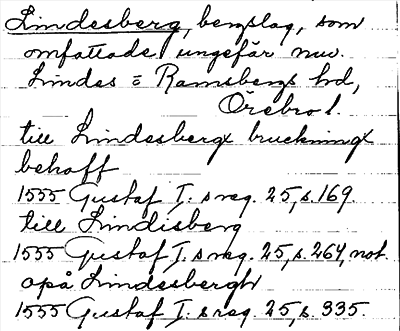 Lindesberg, bergslag, som
omfattade ungefär nuv.
Lindes o Ramsbergs hd,
Örebro l.
till Lindesbergx bruckningx
behoff
1555 Gustaf I:s reg. 25, s. 169.
till Lindisberg
1555 Gustaf I:s reg. 25, s. 264, not.
opå Lindesberght
1555 Gustaf I:s reg. 25, s. 335.